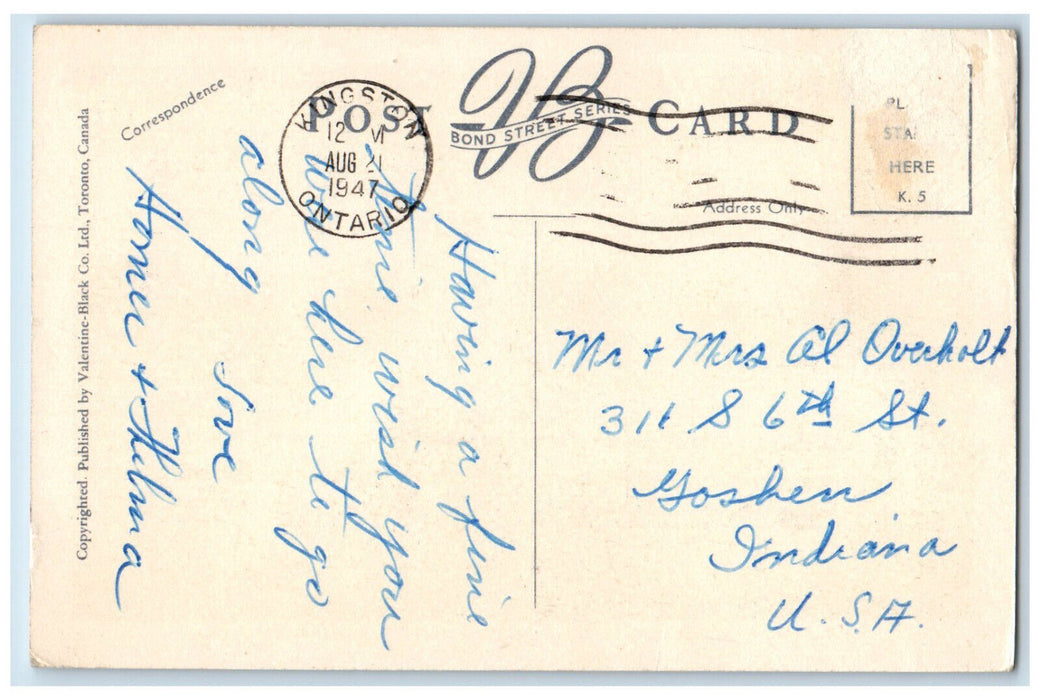 Correspondence
POST CARD
VB
BOND STREET SERIES
KINGSTON
12 M
AUG 21
1947
ONTARIO
PL
STA
HERE
K. 5
Address Only
Having a fine
time, wish you
were here to go
along
Love
Homer + Thelma
Mr + Mrs Al Overholt
311 S 6th St.
Goshen
Indiana
U.S.A.
Copyrighted. Published by Valentine-Black Co. Ltd., Toronto, Canada